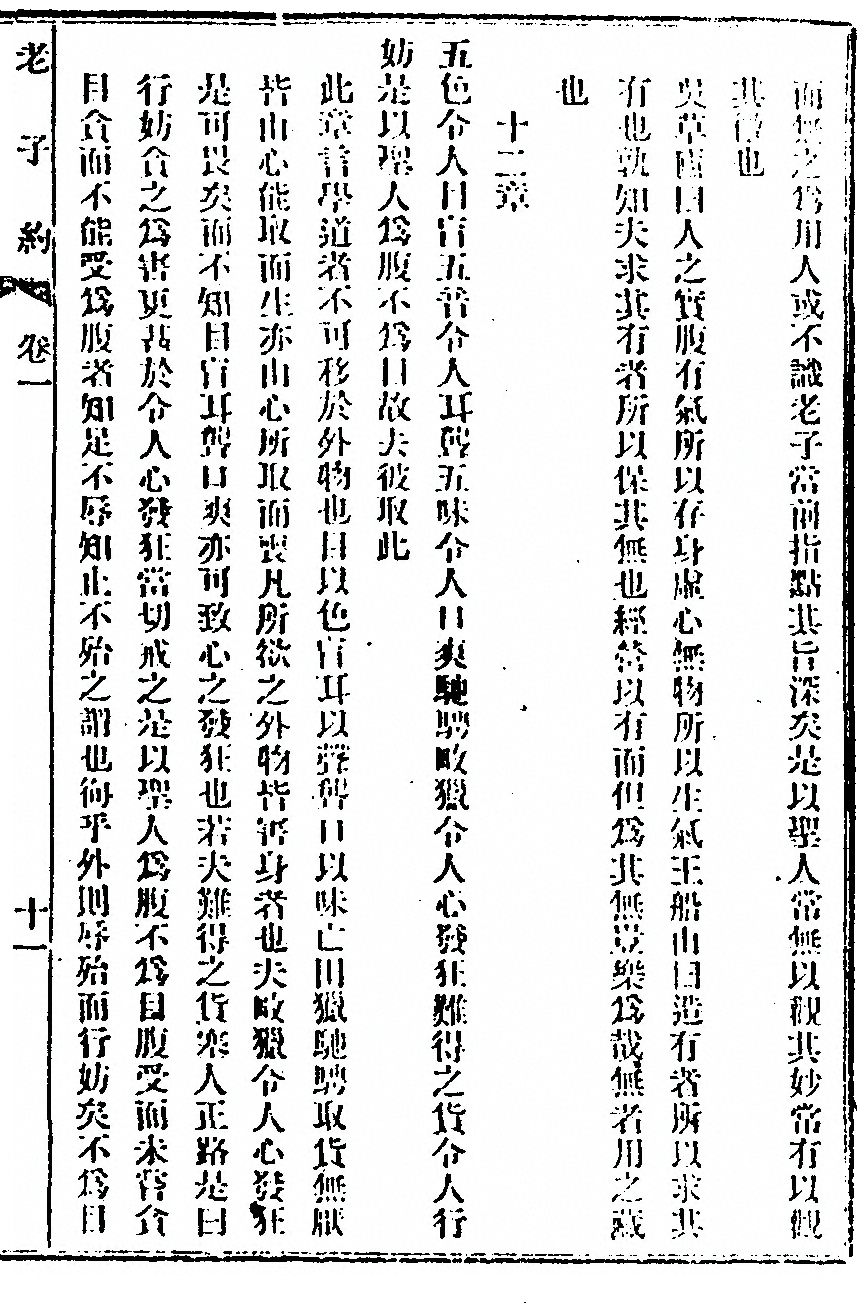 而無之爲用人或不識老子當前指點其旨深矣是以聖人常無以觀其妙常有以觀
其徼也
吳草廬曰人之實腹有氣所以存身虛心無物所以生氣王船山曰造有者所以求其
有也孰知夫求其有者所以保其無也經營以有而但爲其無豈樂爲哉無者用之藏
也
十二章
五色令人目盲五音令人耳聾五味令人口爽馳騁畋獵令人心發狂難得之貨令人行
妨是以聖人爲腹不爲目故去彼取此
此章言學道者不可移於外物也目以色盲耳以聲聾口以味亡田獵馳騁取貨無厭
皆由心能取而生亦由心所取而喪凡所欲之外物皆害身者也夫畋獵令人心發狂
是可畏矣而不知目盲耳聾口爽亦可致心之發狂也若夫難得之貨塞人正路是曰
行妨貪之爲害更甚於令人心發狂當切戒之是以聖人爲腹不爲目腹受而未嘗貪
目貪而不能受爲腹者知足不辱知止不殆之謂也徇乎外則辱殆而行妨矣不爲目
老子約 卷一 十一